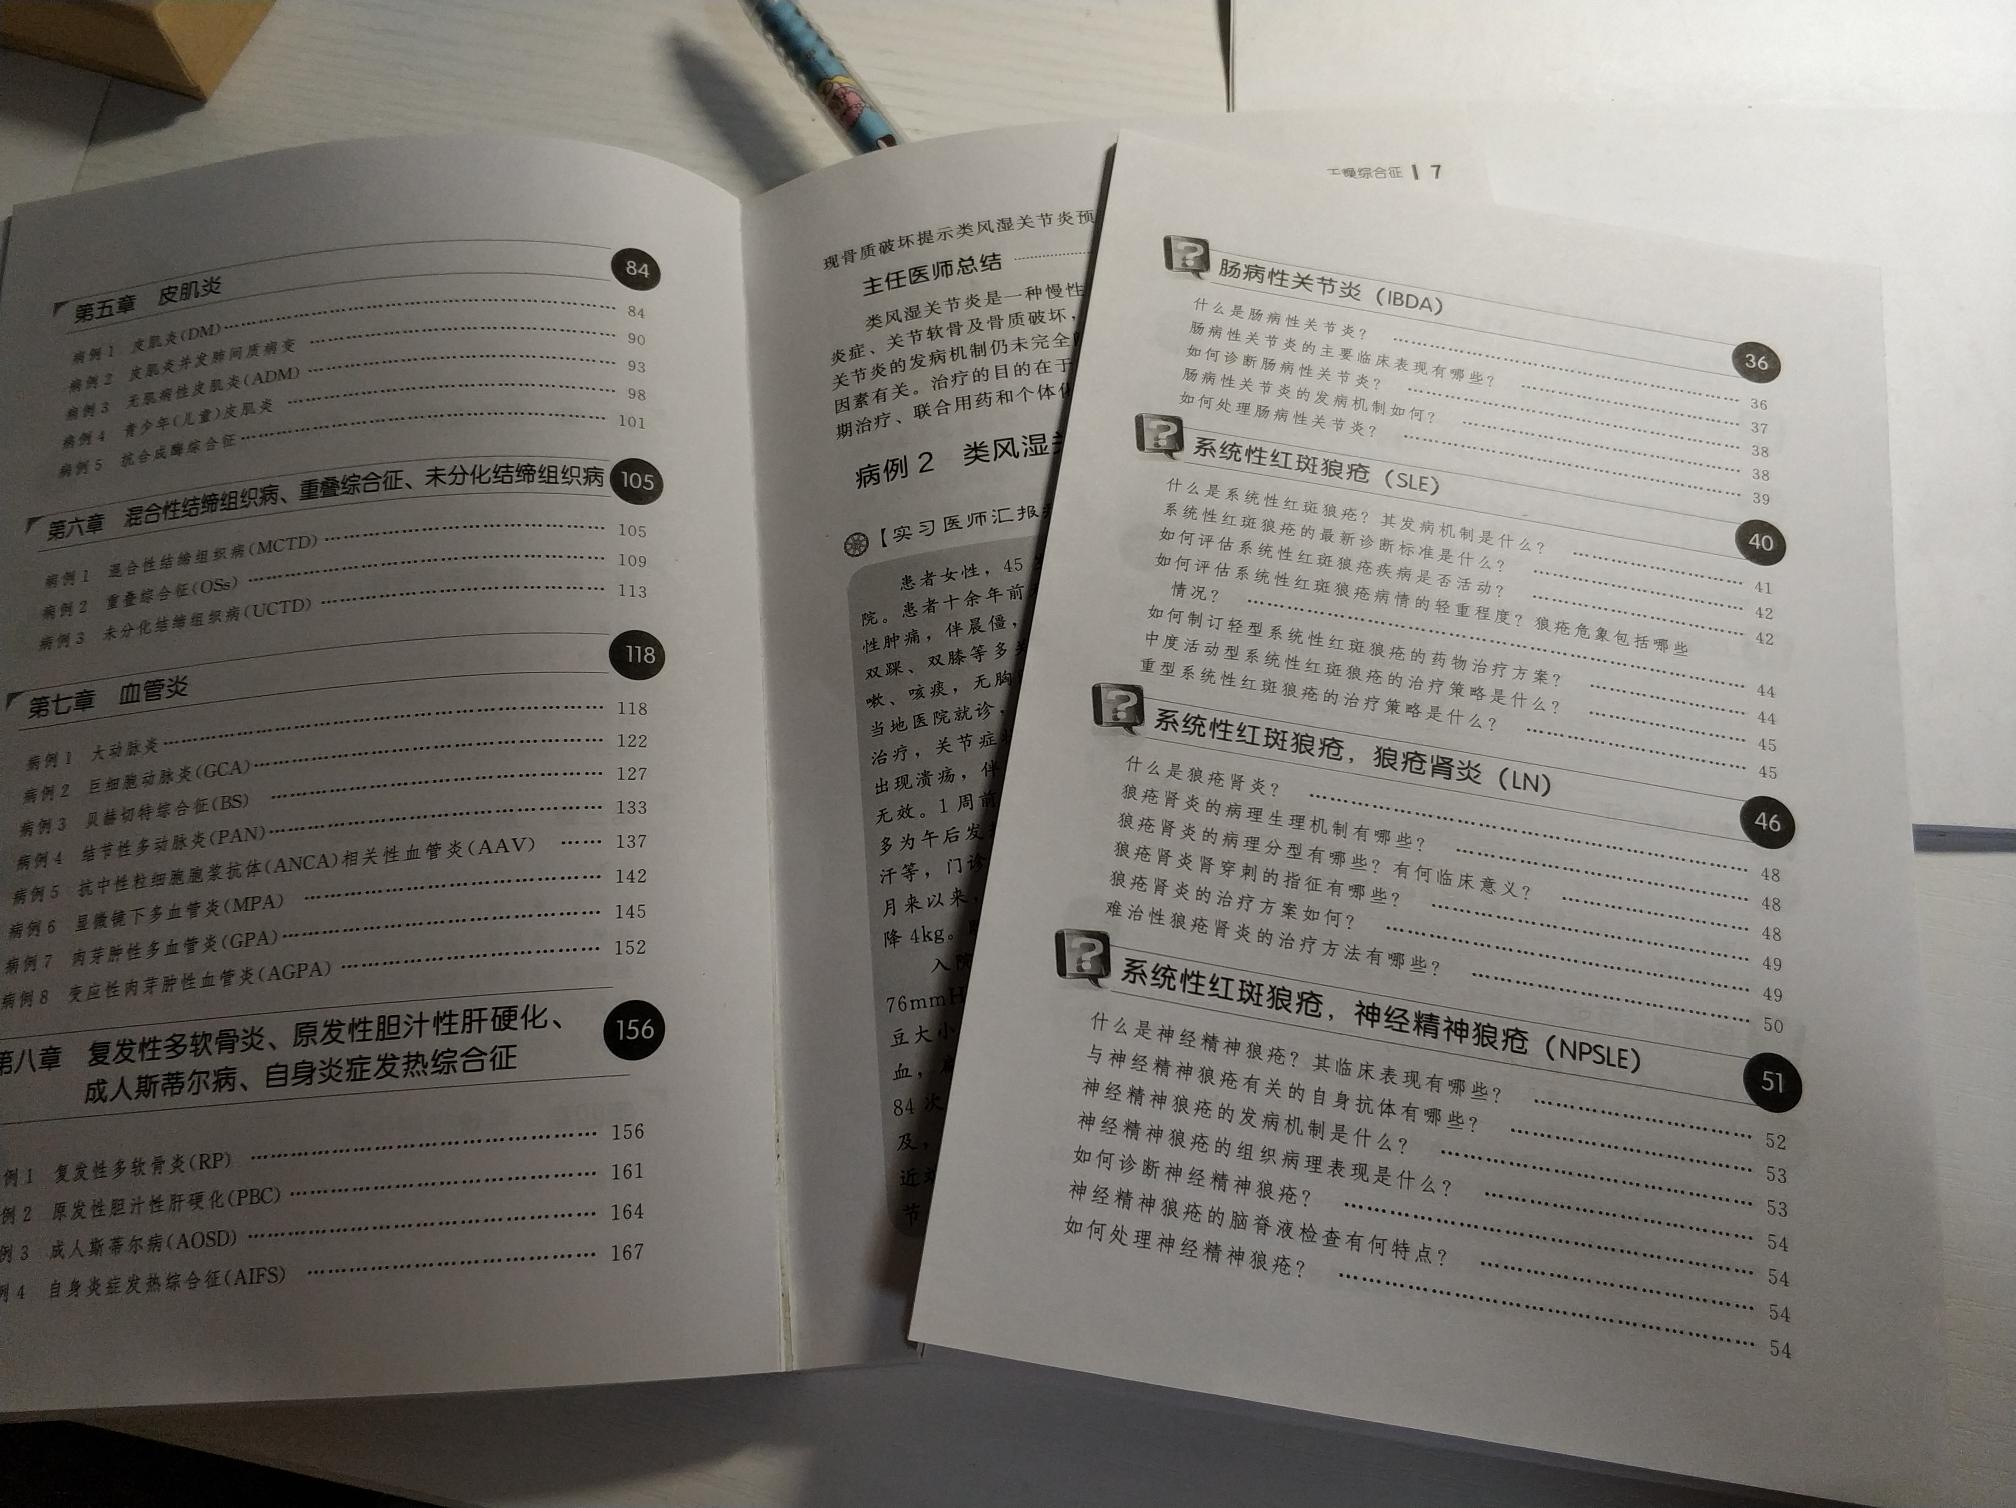 第五章 皮肌炎 84
病例1 皮肌炎(DM) 84
病例2 皮肌炎并发肺间质病变 90
病例3 无肌病性皮肌炎(ADM) 93
病例4 青少年(儿童)皮肌炎 98
病例5 抗合成酶综合征 101
第六章 混合性结缔组织病、重叠综合征、未分化结缔组织病 105
病例1 混合性结缔组织病(MCTD) 105
病例2 重叠综合征(OSs) 109
病例3 未分化结缔组织病(UCTD) 113
第七章 血管炎 118
病例1 大动脉炎 118
病例2 巨细胞动脉炎(GCA) 122
病例3 贝赫切特综合征(BS) 127
病例4 结节性多动脉炎(PAN) 133
病例5 抗中性粒细胞胞浆抗体(ANCA)相关性血管炎(AAV) 137
病例6 显微镜下多血管炎(MPA) 142
病例7 肉芽肿性多血管炎(GPA) 145
病例8 变应性肉芽肿性血管炎(AGPA) 152
第八章 复发性多软骨炎、原发性胆汁性肝硬化、
成人斯蒂尔病、自身炎症发热综合征 156
例1 复发性多软骨炎(RP) 156
例2 原发性胆汁性肝硬化(PBC) 161
例3 成人斯蒂尔病(AOSD) 164
例4 自身炎症发热综合征(AIFS) 167
现骨质破坏提示类风湿关节炎预
主任医师总结
类风湿关节炎是一种慢性
炎症、关节软骨及骨质破坏，
关节炎的发病机制仍未完全
因素有关。治疗的目的在于
期治疗、联合用药和个体化
病例2 类风湿
【实习医师汇报
患者女性，45
院。患者十余年前
性肿痛，伴晨僵，
双踝、双膝等多
嗽、咳痰，无胸
当地医院就诊，
治疗，关节症
出现溃疡，伴
无效。1周前
多为午后发
汗等，门诊
月来以来，
降4kg。
入院
76mmH
豆大小
血，
84次
及，
近
节
干燥综合征 7
肠病性关节炎（IBDA） 36
什么是肠病性关节炎？ 36
肠病性关节炎的主要临床表现有哪些？ 37
如何诊断肠病性关节炎？ 38
肠病性关节炎的发病机制如何？ 38
如何处理肠病性关节炎？ 39
系统性红斑狼疮（SLE） 40
什么是系统性红斑狼疮？其发病机制是什么？ 41
系统性红斑狼疮的最新诊断标准是什么？ 42
如何评估系统性红斑狼疮疾病是否活动？ 42
如何评估系统性红斑狼疮病情的轻重程度？狼疮危象包括哪些
情况？ 44
如何制订轻型系统性红斑狼疮的药物治疗方案？ 44
中度活动型系统性红斑狼疮的治疗策略是什么？ 45
重型系统性红斑狼疮的治疗策略是什么？ 45
系统性红斑狼疮，狼疮肾炎（LN） 46
什么是狼疮肾炎？ 48
狼疮肾炎的病理生理机制有哪些？ 48
狼疮肾炎的病理分型有哪些？有何临床意义？ 48
狼疮肾炎肾穿刺的指征有哪些？ 49
狼疮肾炎的治疗方案如何？ 49
难治性狼疮肾炎的治疗方法有哪些？ 50
系统性红斑狼疮，神经精神狼疮（NPSLE） 51
什么是神经精神狼疮？其临床表现有哪些？ 52
与神经精神狼疮有关的自身抗体有哪些？ 53
神经精神狼疮的发病机制是什么？ 53
神经精神狼疮的组织病理表现是什么？ 54
如何诊断神经精神狼疮？ 54
神经精神狼疮的脑脊液检查有何特点？ 54
如何处理神经精神狼疮？ 54